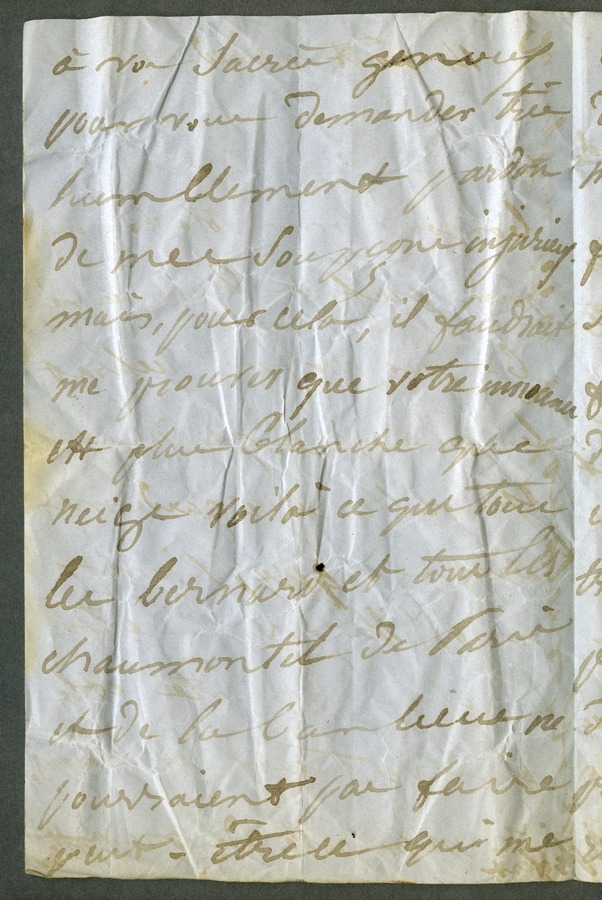 à vos Sacrés genoux
pour vous demander très
humblement pardon
de mes Soupçons injurieux
mais, pour cela, il faudrait
me prouver que votre innocence
est plus blanche que
neige voilà ce que tous
les bernard et tous les
chaumontel de Paris
et de la banlieue ne
pourraient pas faire
peut-être ce qui me